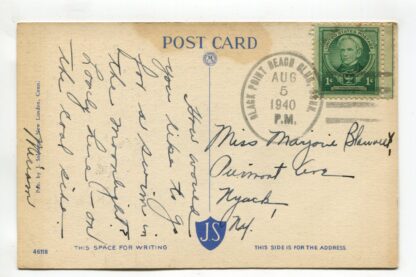 POST CARD
How would
you like to go
for a swim in
the moonlight?
Lovely time - on
the cool side -
Miriam
Pub. by J. New London, Conn.
46118
THIS SPACE FOR WRITING
JS
BLACK POINT BEACH CLUB, CONN.
AUG
5
1940
P.M.
UNITED STATES POSTAGE
1¢ 1¢
Miss Marjorie
Piermont Ave
Nyack,
N.Y.
THIS SIDE IS FOR THE ADDRESS